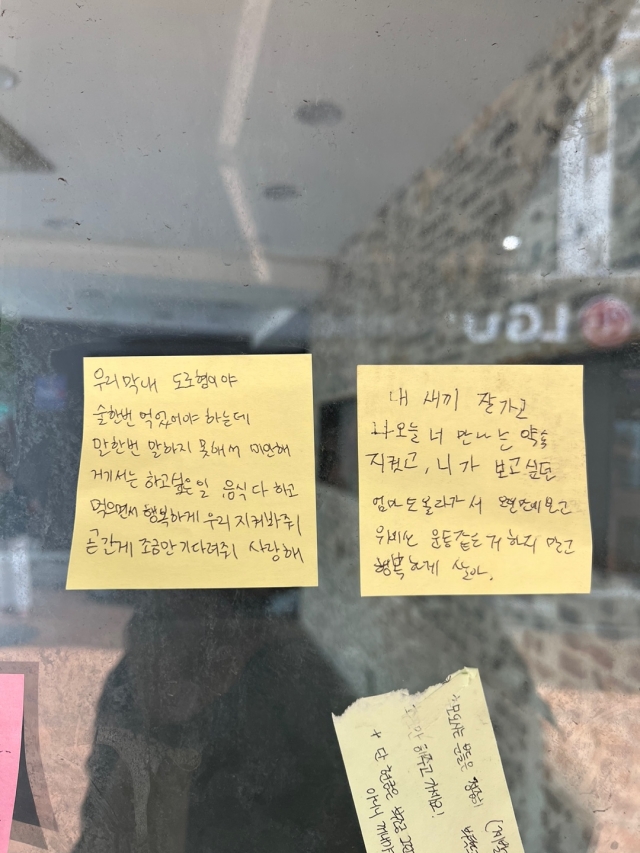 우리 막내 도로형이야
술한번 먹었어야 하는데
말한번 말하지 못해서 미안해
거기서는 하고싶은일 음식 다 하고
먹으면서 행복하게 우리 지켜봐줘
곧 간게 조금만 기다려줘 사랑해
내 새끼 잘가고
나 오늘 너 만나는 약속
지켰고, 니가 보고싶던
엄마도 올라가서 오랜만에 보고
위에선 운동같은 거 하지 말고
행복하게 살아.
LGU
오시는 분들은
주고 가세요!
+ 단 현금은